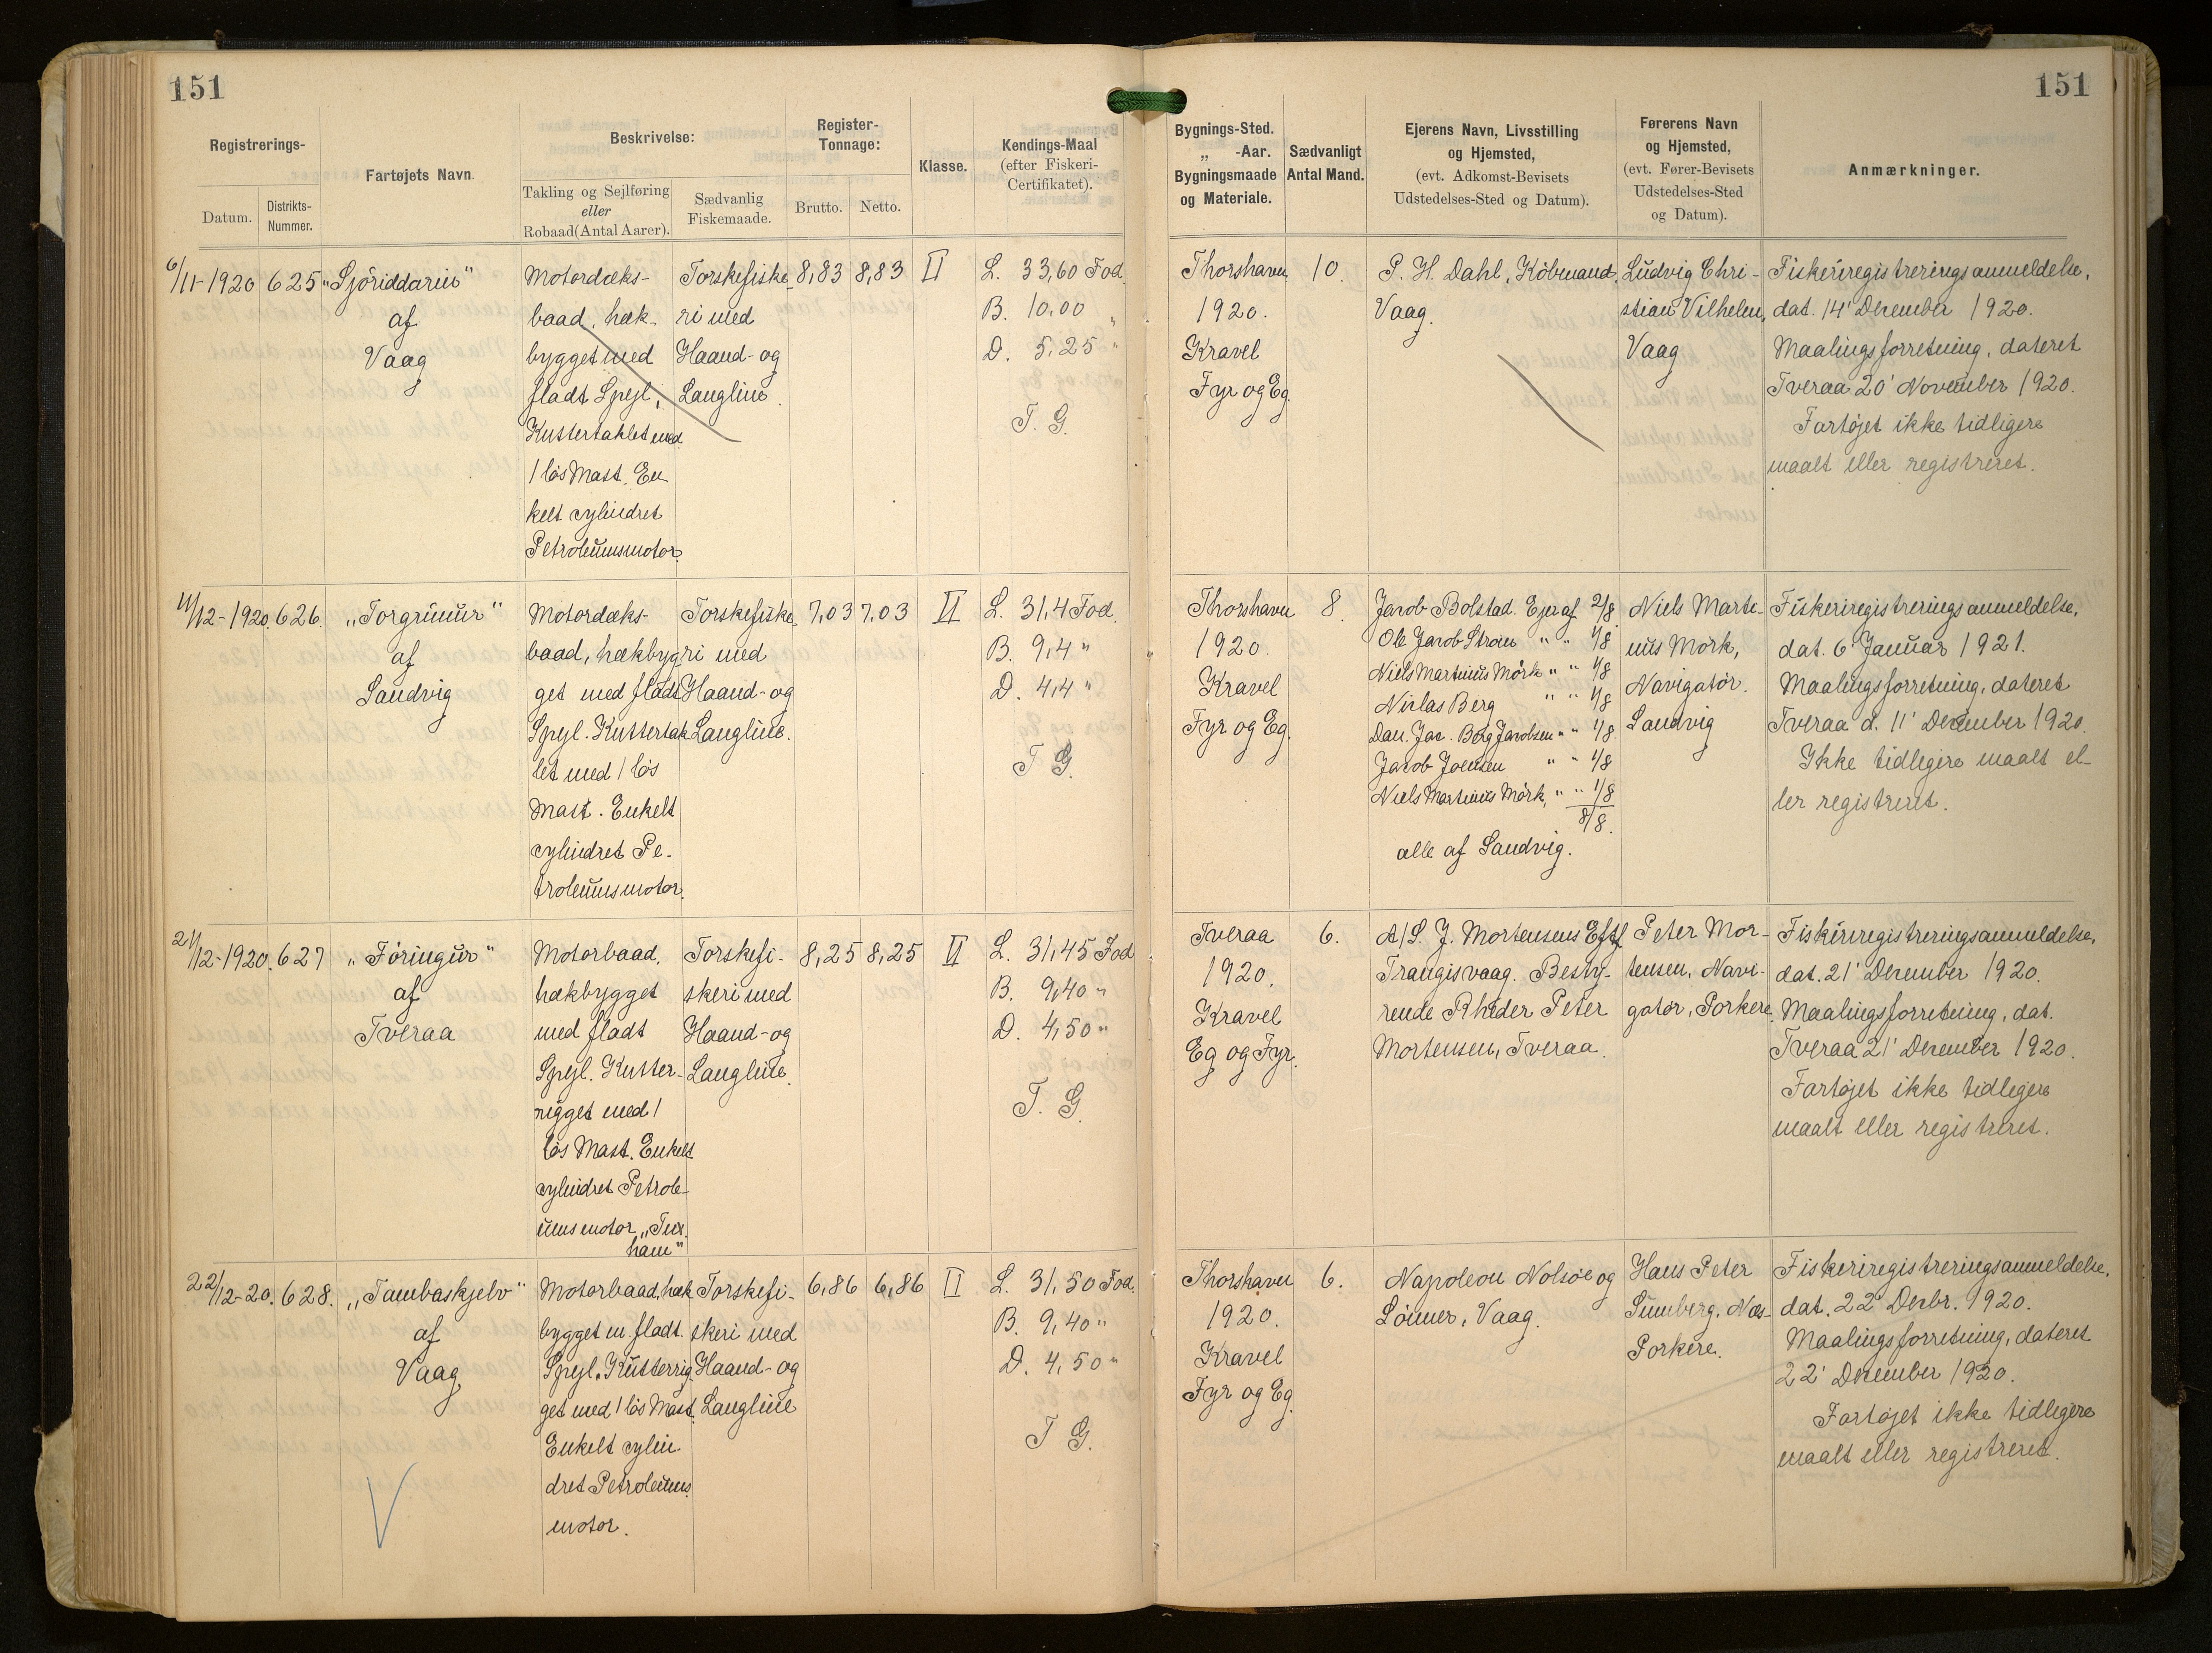 151
151
Registrerings-
Datum.
Distrikts-
Nummer.
Fartøjets Navn.
Beskrivelse:
Takling og Sejlføring
eller
Robaad (Antal Aarer).
Sædvanlig
Fiskemaade.
Register-
Tonnage:
Brutto.
Netto.
Klasse.
Kendings-Maal
(efter Fiskeri-
Certifikatet).
Bygnings-Sted.
„ -Aar.
Bygningsmaade
og Materiale.
Sædvanligt
Antal Mand.
Ejerens Navn, Livsstilling
og Hjemsted,
(evt. Adkomst-Bevisets
Udstedelses-Sted og Datum).
Førerens Navn
og Hjemsted,
(evt. Fører-Bevisets
Udstedelses-Sted
og Datum).
Anmærkninger.
6/11-1920
625
„Sjóriddarin“
af
Vaag
Motordæks-
baad, hæk-
bygget med
fladt Spejl,
Kuttertaklet med
1 lös Mast. En-
kelt cylindret
Petroleumsmotor.
Torskefiske-
ri med
Haand- og
Langline.
8,83
8,83
II
L. 33,60 Fod.
B. 10,00 „
D. 5,25 "
T. G.
Thorshavn
1920.
Kravel
Fyr og Eg.
10.
P. H. Dahl, Köbmand,
Vaag.
Ludvig Chri-
stian Vilhelm,
Vaag
Fiskeriregistreringsanmeldelse,
dat. 14' December 1920.
Maalingsforretning, dateret
Tveraa 20' November 1920.
Fartøjet ikke tidligere
maalt eller registreret.
11/12-1920.
626.
„Torgrimur“
af
Sandvig
Motordæks-
baad, hækbyg-
get med fladt
Spejl. Kuttertak-
let med 1 lös
Mast. Enkelt
cylindret Pe-
troleumsmotor.
Torskefiske-
ri med
Haand- og
Langline.
7,03
7,03
II
L. 31,4 Fod.
B. 9,4 "
D. 4,4 "
T G.
Thorshavn
1920.
Kravel
Fyr og Eg.
8.
Jacob Bolstad. Ejer af 2/8
Ole Jacob Strøm " " 1/8
Niels Martinus Mörk " " 1/8
Niclas Berg " " 1/8
Dan. Jac. Berg Jacobsen " " 1/8
Jacob Joensen " " 1/8
Niels Martinus Mörk, " " 1/8
8/8.
alle af Sandvig.
Niels Marti-
nus Mörk,
Navigatör.
Sandvig
Fiskeriregistreringsanmeldelse,
dat. 6' Januar 1921.
Maalingsforretning, dateret
Tveraa d. 11' December 1920.
Ikke tidligere maalt el-
ler registreret.
21/12-1920.
627
„Föringur“
af
Tveraa
Motorbaad,
hækbygget
med fladt
Spejl. Kutter-
rigget med 1
lös Mast. Enkelt
cylindret Petrole-
umsmotor „Tux-
ham“
Torskefi-
skeri med
Haand- og
Langline.
8,25
8,25
II
L. 31,45 Fod
B. 9,40 "
D. 4,50 "
T. G.
Tveraa
1920.
Kravel
Eg og Fyr.
6.
A/S. J. Mortensens Eftf
Trangisvaag. Besty-
rende Rheder Peter
Mortensen, Tveraa.
Peter Mor-
tensen, Navi-
gatør, Porkere.
Fiskeriregistreringsanmeldelse,
dat. 21' December 1920.
Maalingsforretning, dat.
Tveraa 21' December 1920.
Fartøjet ikke tidligere
maalt eller registreret.
22/12-20.
628.
„Tambaskjelv“
af
Vaag
Motorbaad, hæk-
bygget m. fladt
Spejl. Kutterrig-
get med 1 lös Mast.
Enkelt cylin-
dret Petroleums
motor.
Torskefi-
skeri med
Haand- og
Langline
6,86
6,86
II
L. 31,50 Fod.
B. 9,40 "
D. 4,50 "
T G.
Thorshavn
1920.
Kravel
Fyr og Eg
6.
Napoleon Nolsöe og
Sönner, Vaag.
Hans Peter
Sumberg, Næs-
Porkere.
Fiskeriregistreringsanmeldelse,
dat. 22' Decbr. 1920.
Maalingsforretning, dateret
22' December 1920.
Fartøjet ikke tidligere
maalt eller registreret.